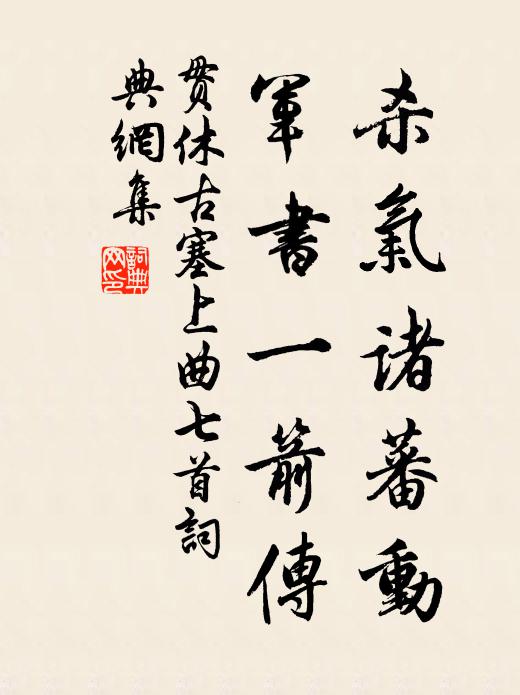 杀氣诸蕃動
軍書一箭傳
贯休古塞上曲七首詞
典網集
詞典網印